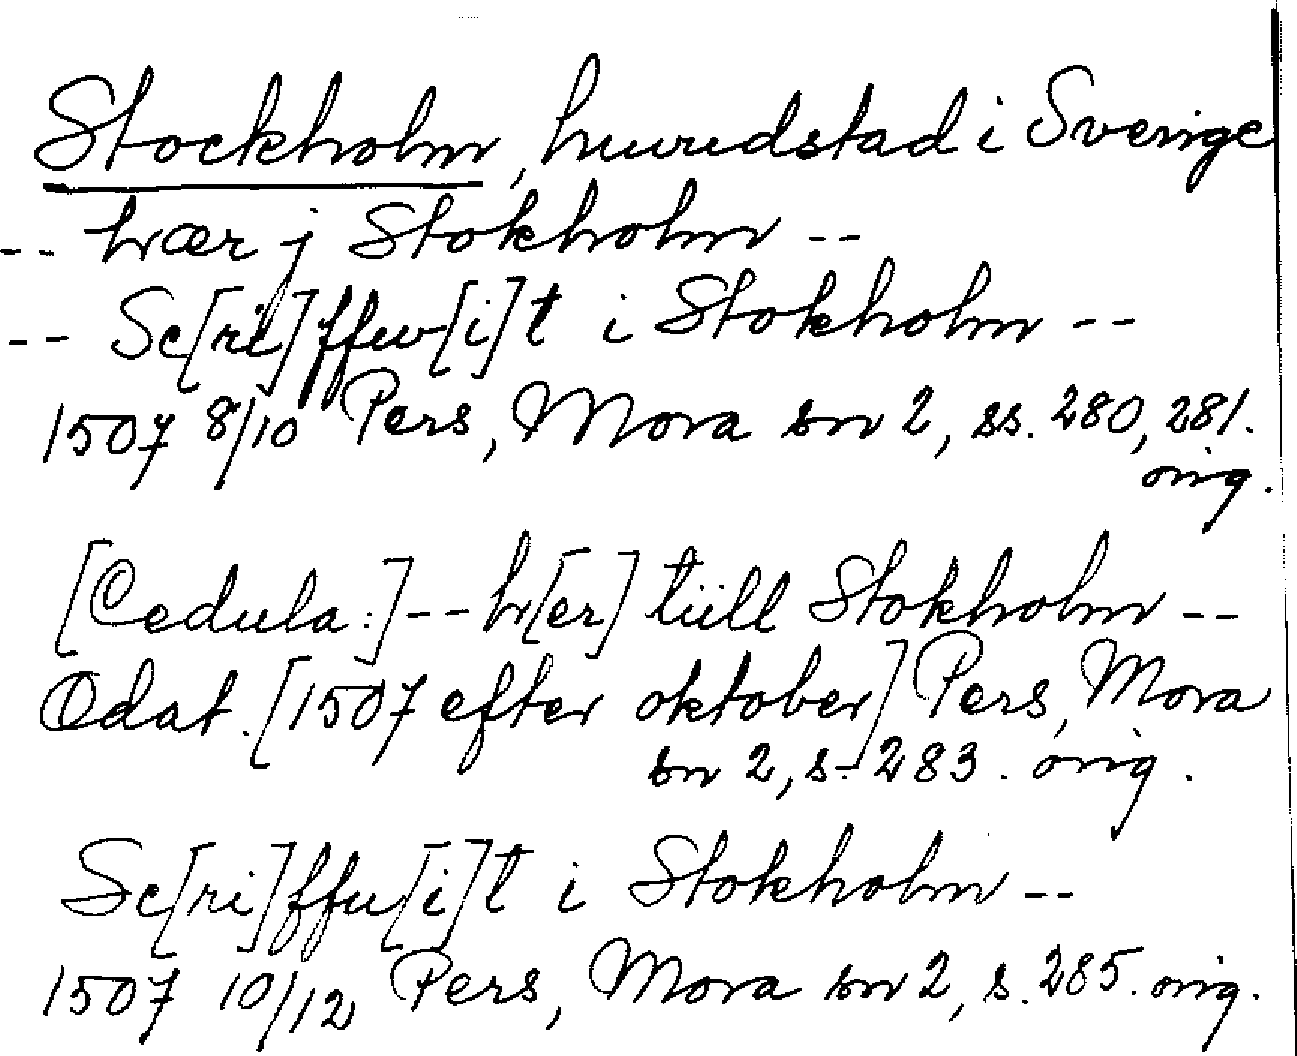 Stockholm, huvudstad i Sverige
-- hær j Stokholm --
-- Sc[ri]ffw[i]t i Stokholm --
1507 8/10 Pers, Mora sn 2, ss. 280, 281.
orig.
[Cedula:] -- h[er] tiill Stokholm --
Odat. [1507 efter oktober] Pers, Mora
sn 2, s. 283. orig.
Sc[ri]ffu[i]t i Stokholm --
1507 10/12 Pers, Mora sn 2, s. 285. orig.